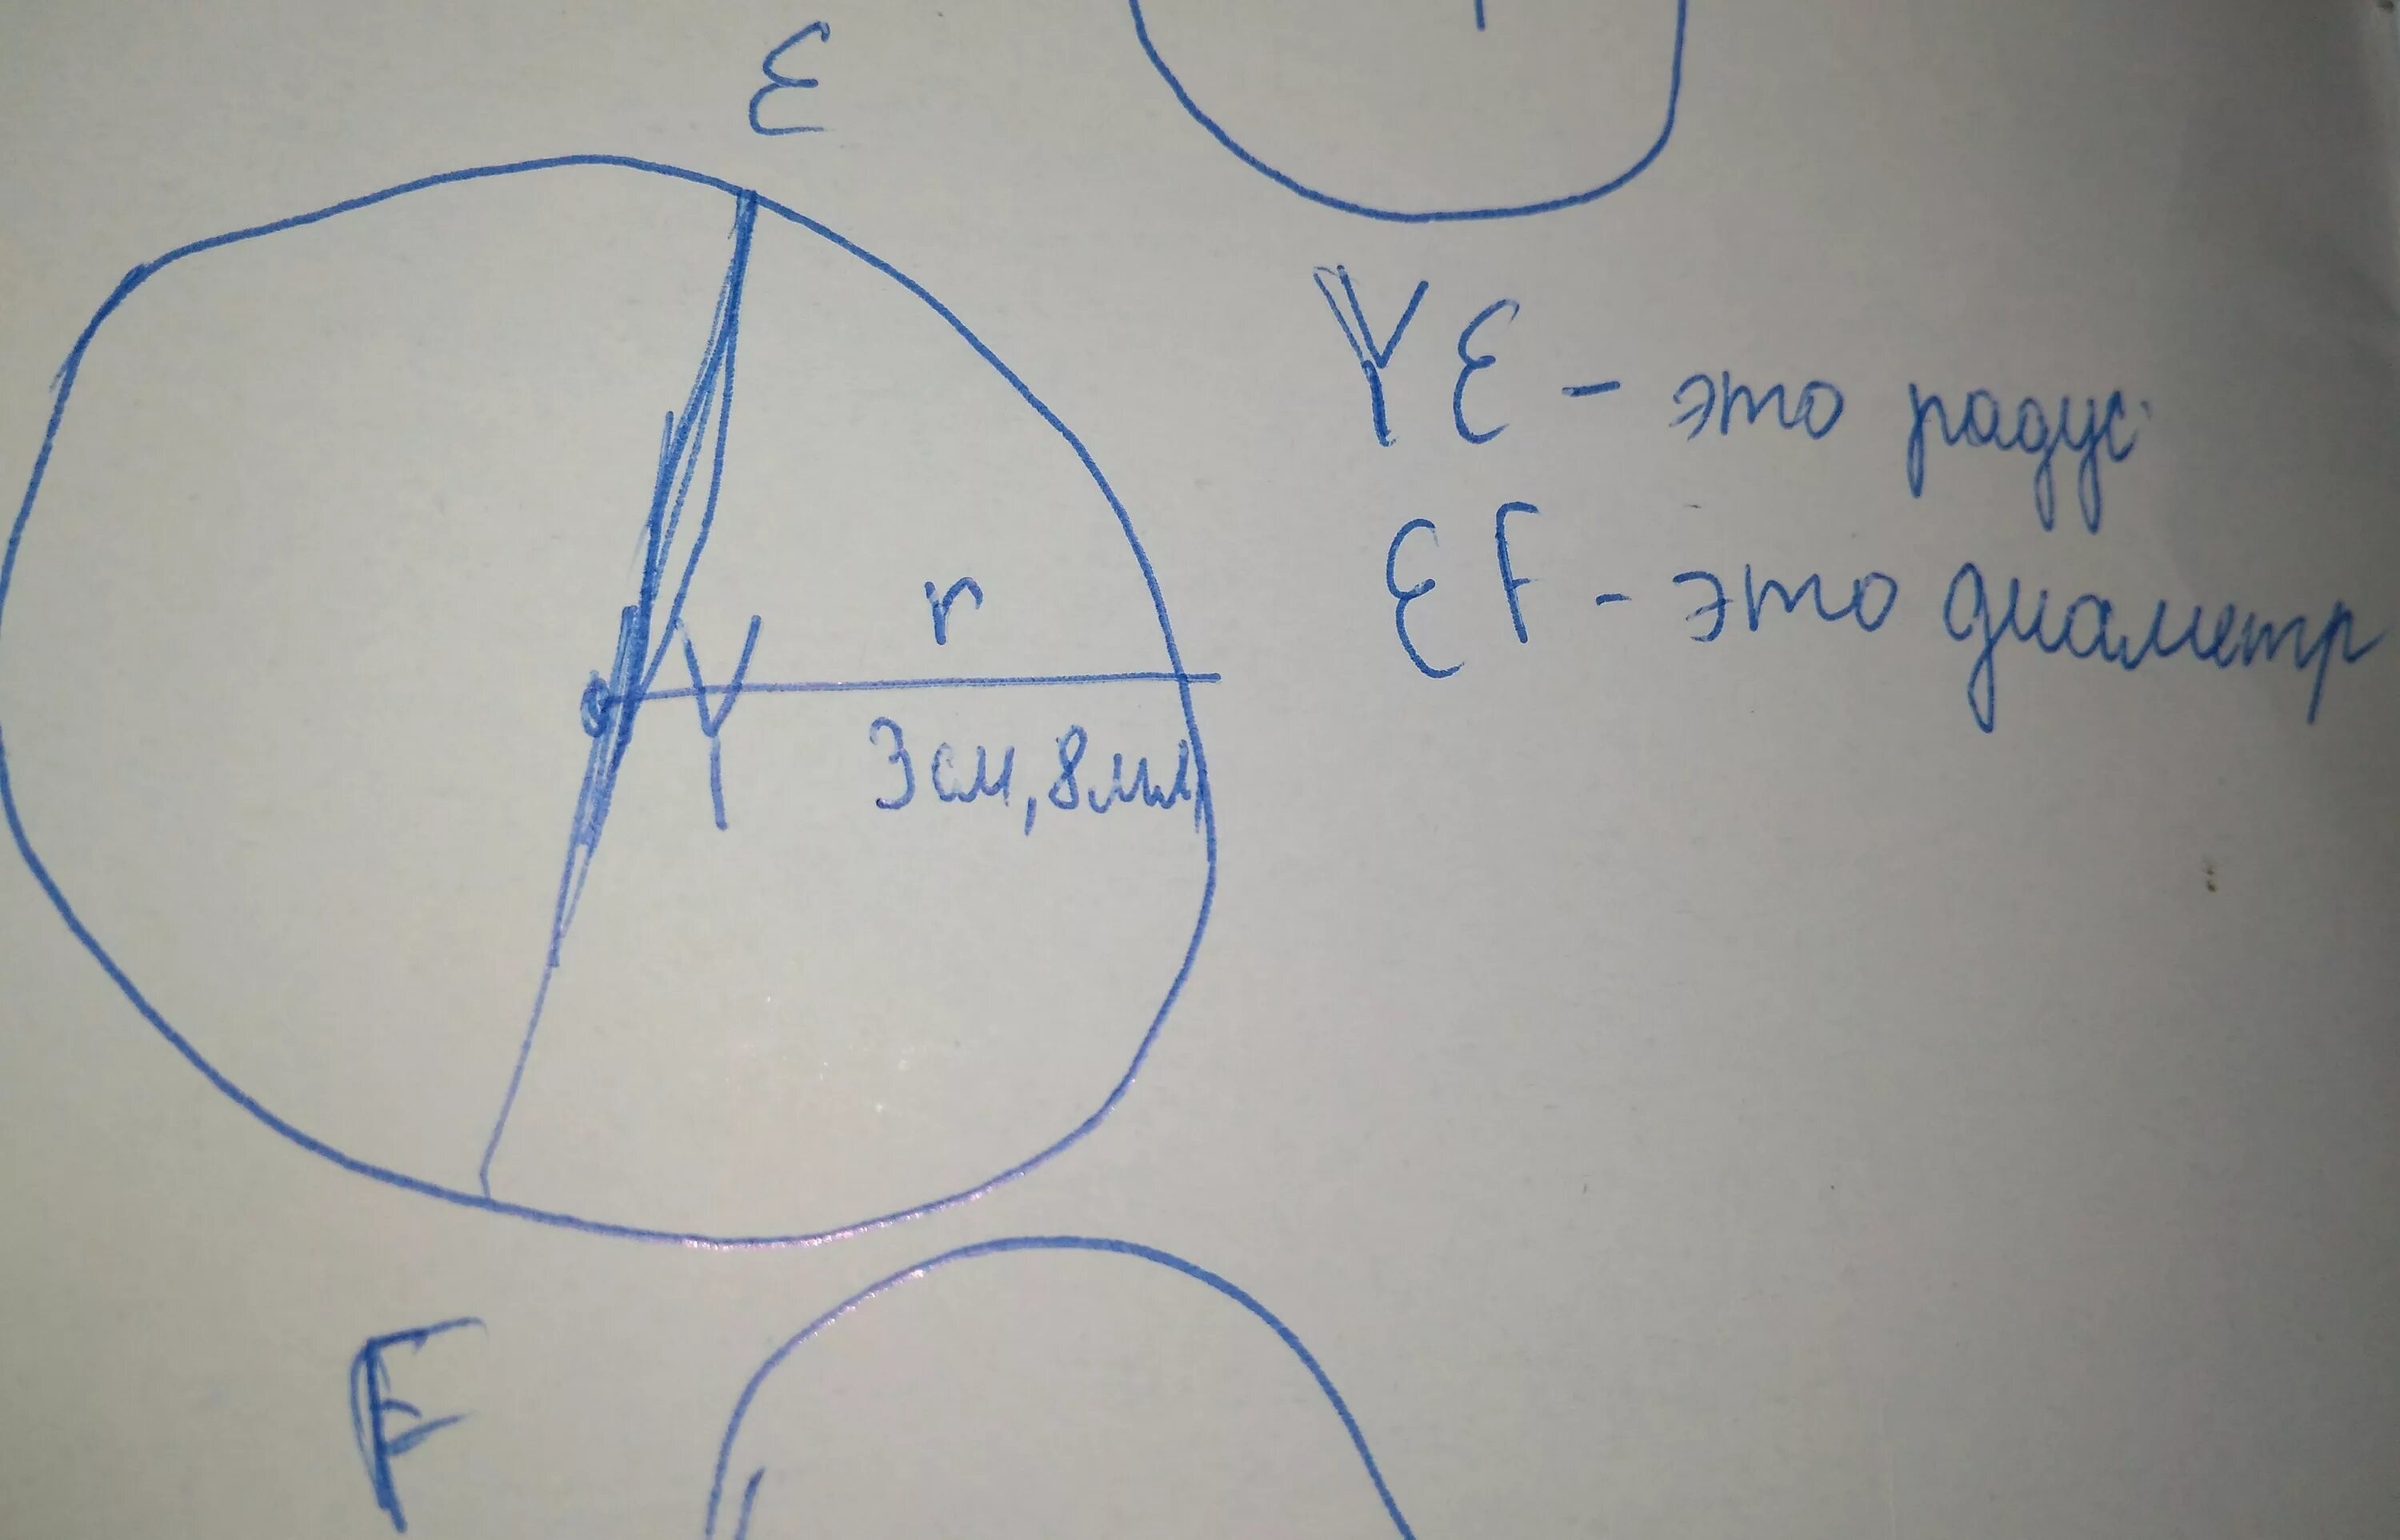 E
YE - это радус
EF - это диаметр
r
Y
3см, 8мм
F